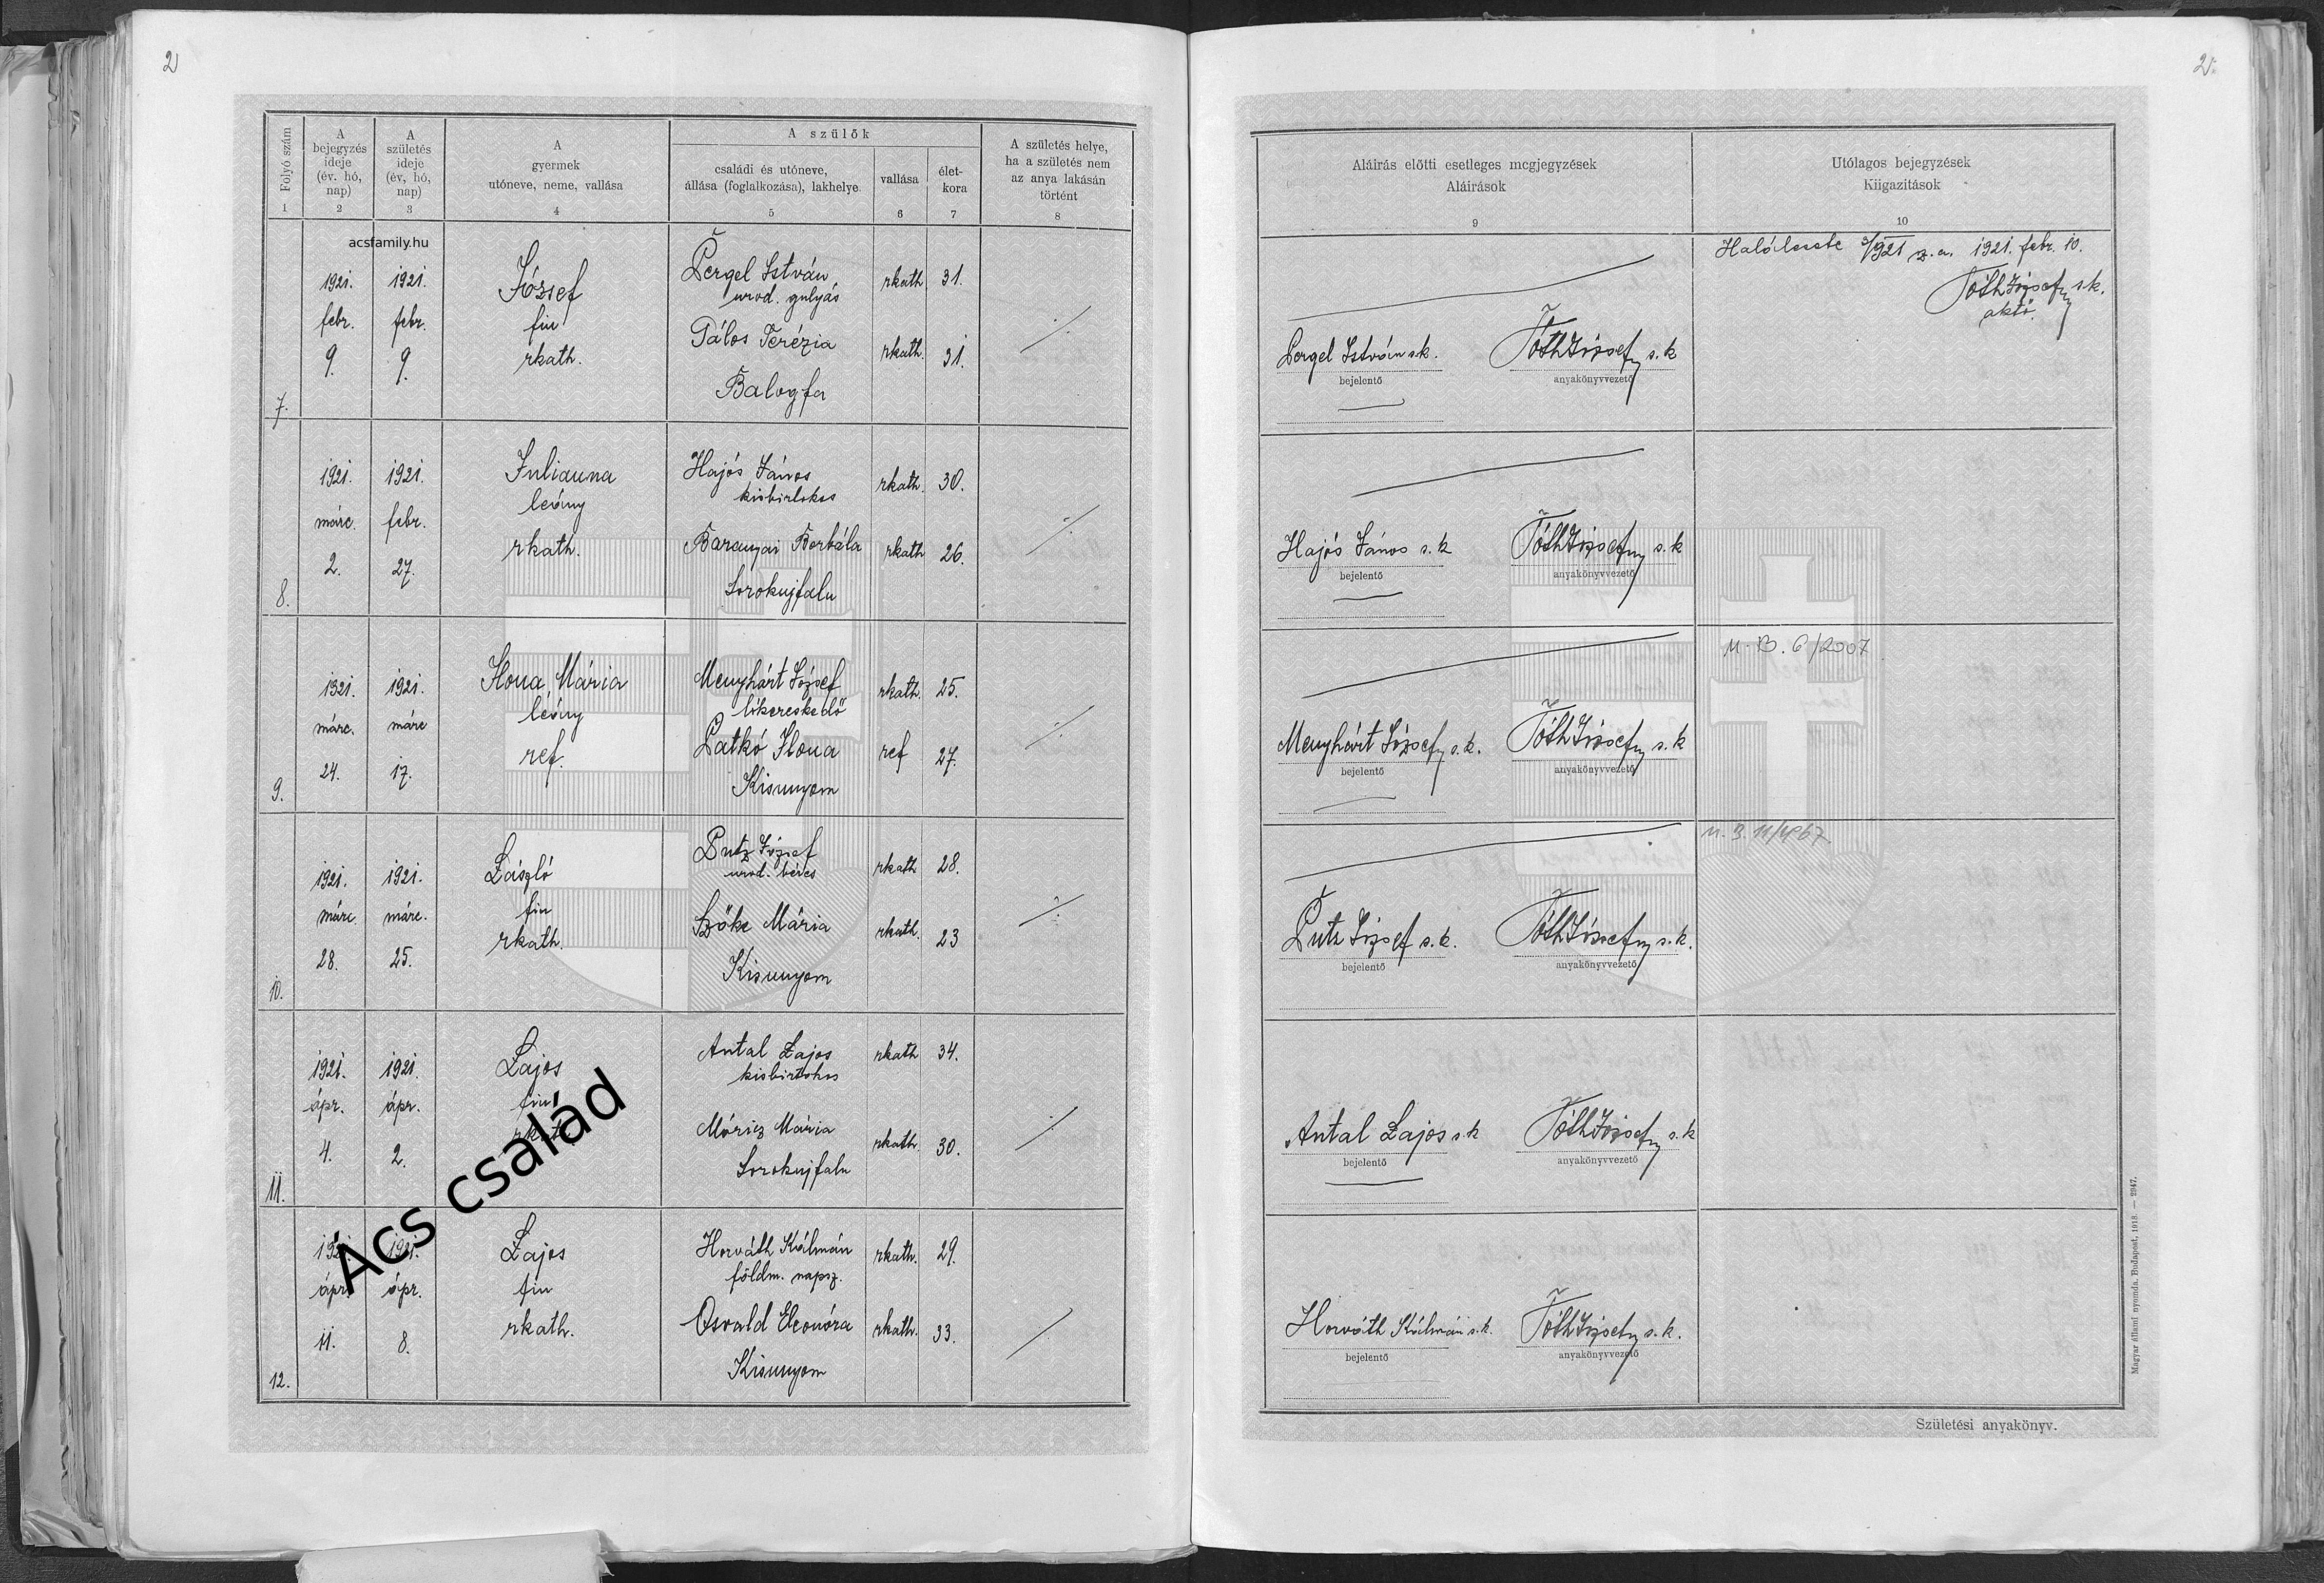 2
2.
Folyó szám
1
A
bejegyzés
ideje
(év. hó,
nap)
2
A
születés
ideje
(év, hó,
nap)
3
A
gyermek
utóneve, neme, vallása
4
A szülők
családi és utóneve,
állása (foglalkozása), lakhelye
5
vallása
6
élet-
kora
7
A születés helye,
ha a születés nem
az anya lakásán
történt
8
Aláirás előtti esetleges megjegyzések
Aláirások
9
Utólagos bejegyzések
Kiigazitások
10
acsfamily.hu
7.
1921.
febr.
9.
1921.
febr.
9.
József
fiu
rkath.
Pergel István
urod. gulyás
Pálos Terézia
Balogfa
rkath
rkath.
31.
31.
Pergel István s.k.
bejelentő
Tóth József s.k
anyakönyvvezető
Haláleset 1921. febr. 10.
Tóth József s.k.
8.
1921.
márc.
2.
1921.
febr.
27.
Julianna
leány
rkath.
Hajós János
kisbirtokos
Baranyai Borbála
Sorokujfalu
rkath.
rkath
30.
26.
Hajós János s.k
bejelentő
Tóth József s.k
anyakönyvvezető
9.
1921.
márc.
24.
1921.
márc
17.
Ilona Mária
leány
ref.
Menyhárt József
lókereskedő
Latkó Ilona
Kisunyom
rkath.
ref
25.
27.
Menyhárt József s.k.
bejelentő
Tóth József s.k
anyakönyvvezető
U.B. 6/2007
10.
1921.
márc
28.
1921.
márc.
25.
László
fiu
rkath.
Putz József
urod. béres
Szőke Mária
Kisunyom
rkath
rkath.
28.
23
Putz József s.k.
bejelentő
Tóth József s.k.
anyakönyvvezető
11.
1921.
ápr.
4.
1921.
ápr.
2.
Lajos
fiu
rkath.
Antal Lajos
kisbirtokos
Móricz Mária
Sorokujfalu
rkath
rkath.
34.
30.
Antal Lajos s.k
bejelentő
Tóth József s.k
anyakönyvvezető
Acs család
12.
1921.
ápr.
11.
1921.
ápr.
8.
Lajos
fiu
rkath.
Horváth Kálmán
földm. napsz.
Osvald Eleonóra
Kisunyom
rkath.
rkath.
29.
33.
Horváth Kálmán s.k.
bejelentő
Tóth József s.k.
anyakönyvvezető
Magyar állami nyomda. Budapest, 1918. — 2947.
Születési anyakönyv.